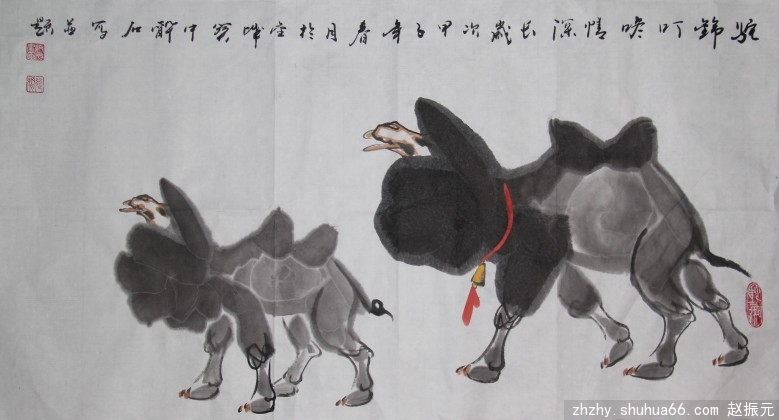 驼铃叮咚情深长岁次甲子年春月於空城癸中醉石写并题
zhzhy.shuhua66.com 赵振元